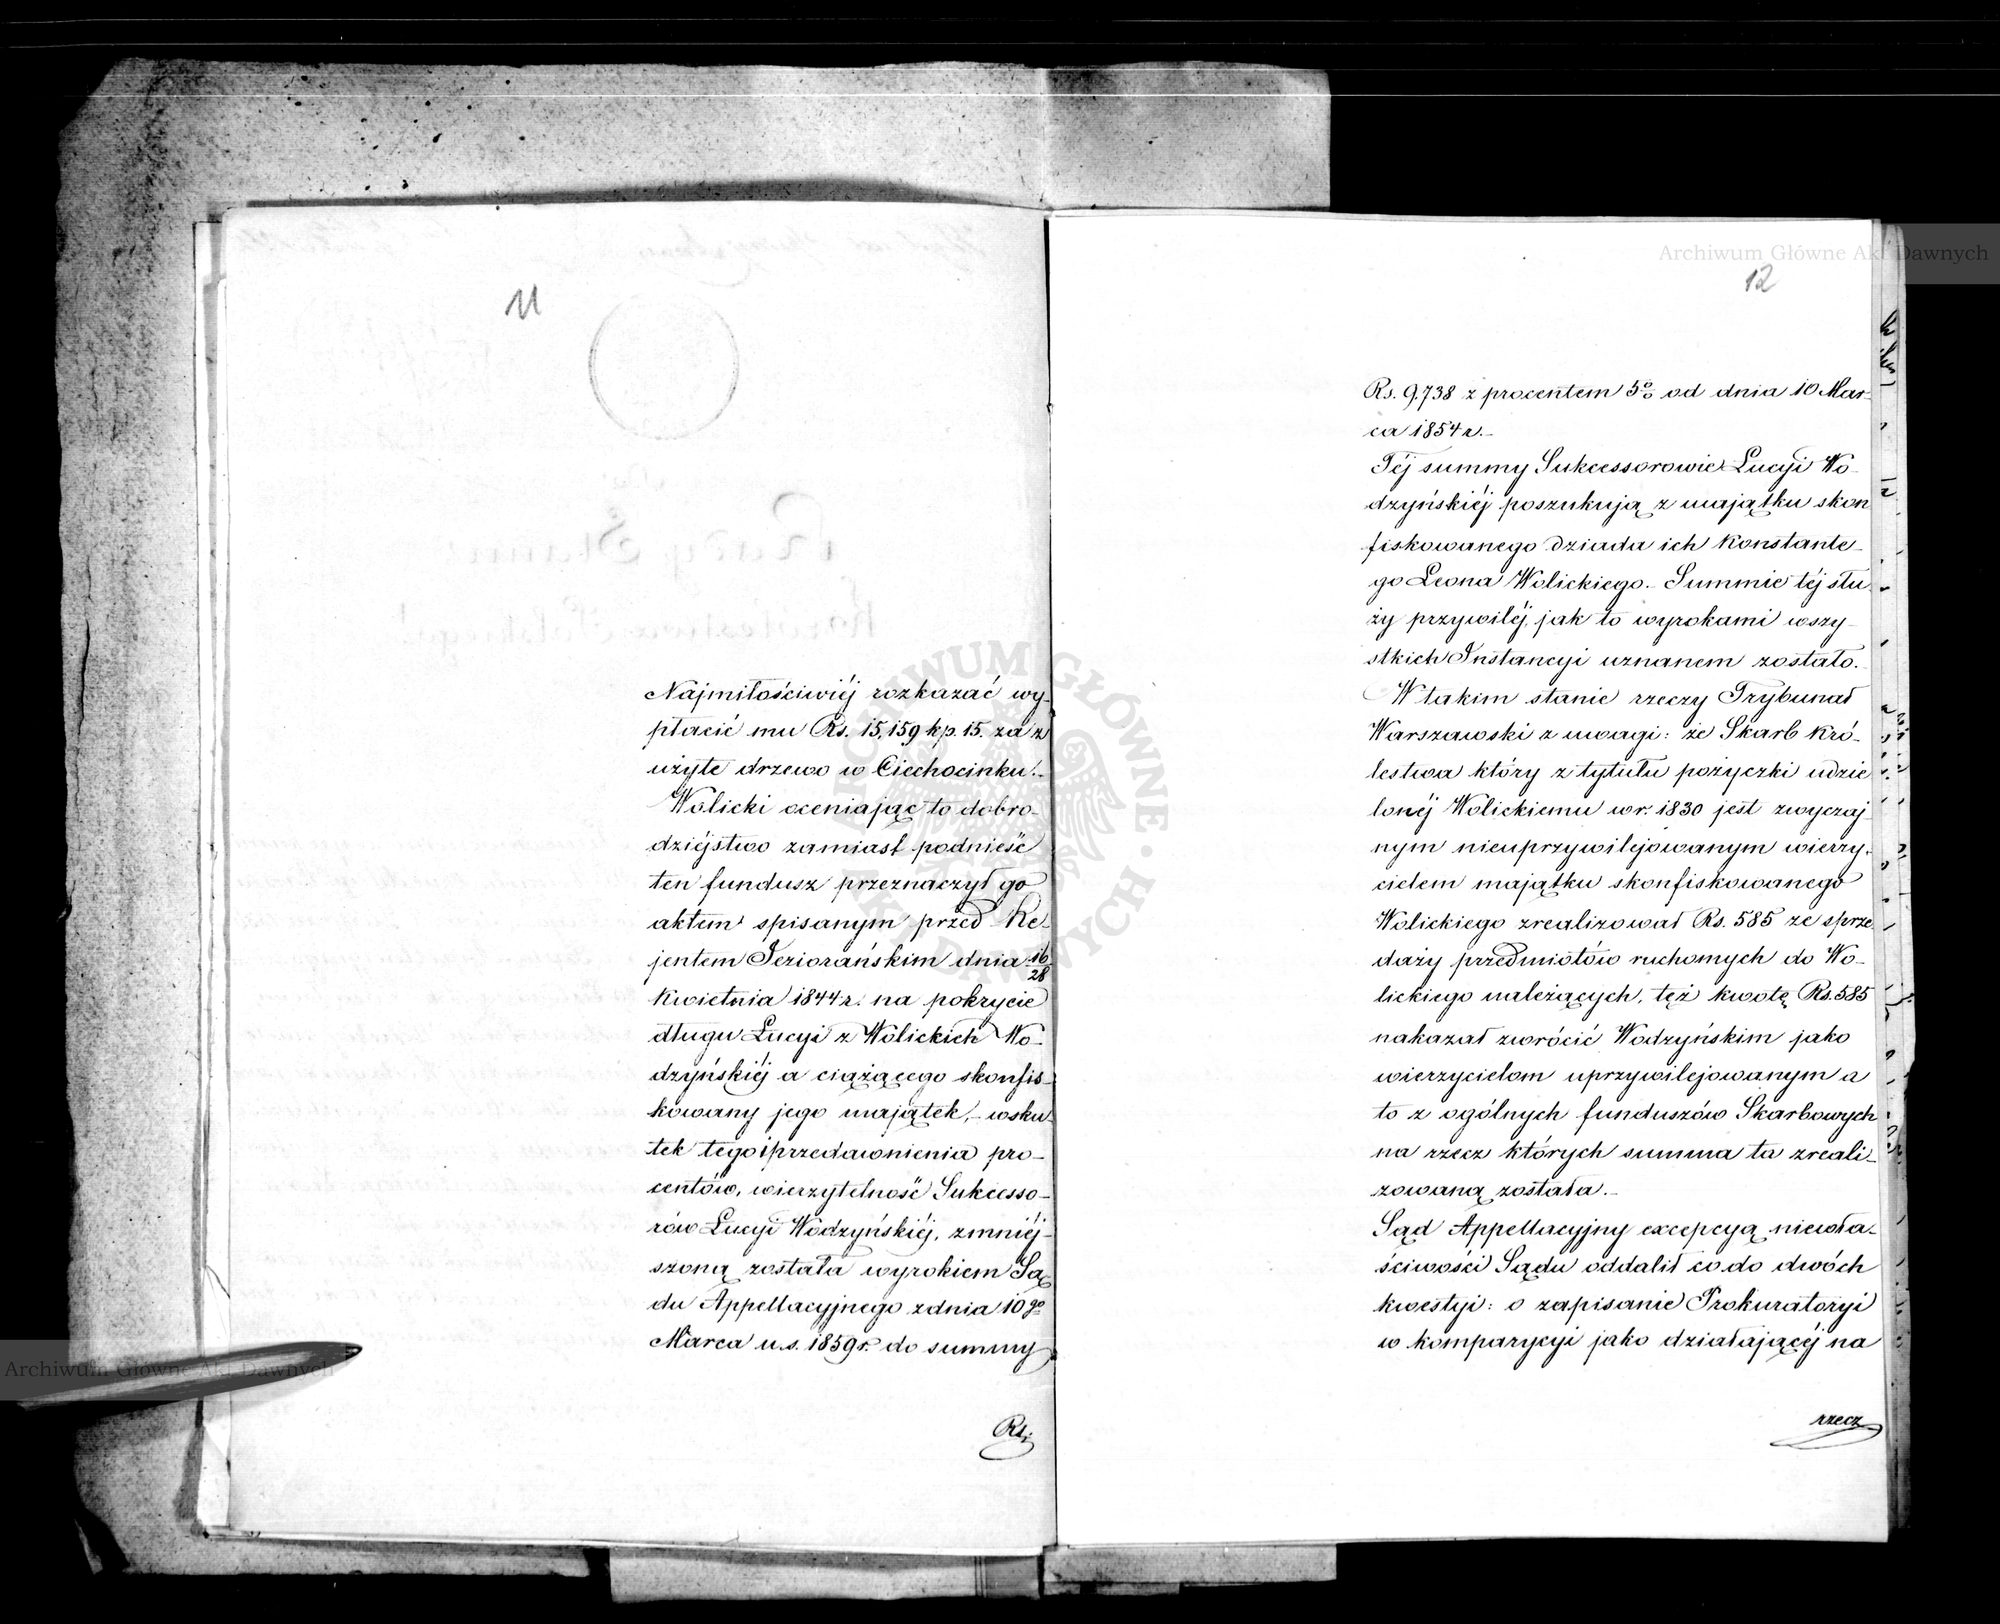 11
Najmiłościwiéj rozkazać wy-
płacić mu Rs. 15,159 kp. 15. za z
użyte drzewo w Ciechocinku.-
Wolicki oceniając to dobro-
dziéjstwo zamiast podnieść
ten fundusz przeznaczył go
aktem spisanym przed Re-
jentem Jeziorańskim dnia 16/28
Kwietnia 1844 r. na pokrycie
długu Łucyi z Wolickich Wo-
dzyńskiéj a ciążącego skonfis-
kowany jego majątek,- wsku-
tek tego i przedawnienia pro-
centów, wierzytelność Sukcesso-
rów Łucyi Wodzyńskiéj, zmniéj-
szoną została wyrokiem Są-
du Appellacyjnego z dnia 10go
Marca u.s. 1859 r. do summy
Rs.
12
Rs. 9,738 z procentem 5% od dnia 10 Mar-
ca 1854 r.-
Téj summy Sukcessorowie Łucyi Wo-
dzyńskiéj poszukują z majątku skon
fiskowanego dziada ich Konstante-
go Leona Wolickiego.- Summie téj słu
ży przywiléj, jak to wyrokami wszy-
stkich Instancyi uznanem zostało.-
W takim stanie rzeczy Trybunał
Warszawski z uwagi: że Skarb Kró-
lestwa który z tytułu pożyczki udzie
lonéj Wolickiemu w r. 1830 jest zwyczaj
nym nieuprzywilejowanym wierzy-
cielem majątku skonfiskowanego
Wolickiego zrealizował Rs. 585 ze sprze
daży przedmiotów ruchomych do Wo-
lickiego należących, też kwotę Rs. 585
nakazał zwrócić Wodzyńskim jako
wierzycielom uprzywilejowanym a
to z ogólnych funduszów Skarbowych
na rzecz których summa ta zreali-
zowaną została.-
Sąd Appellacyjny excepcyą niewła-
ściwości Sądu oddalił co do dwóch
kwestyi: o zapisanie Prokuratoryi
w komparycyi jako działającéj na
rzecz
Archiwum Główne Akt Dawnych
Archiwum Główne Akt Dawnych
ARCHIWUM GŁÓWNE AKT DAWNYCH